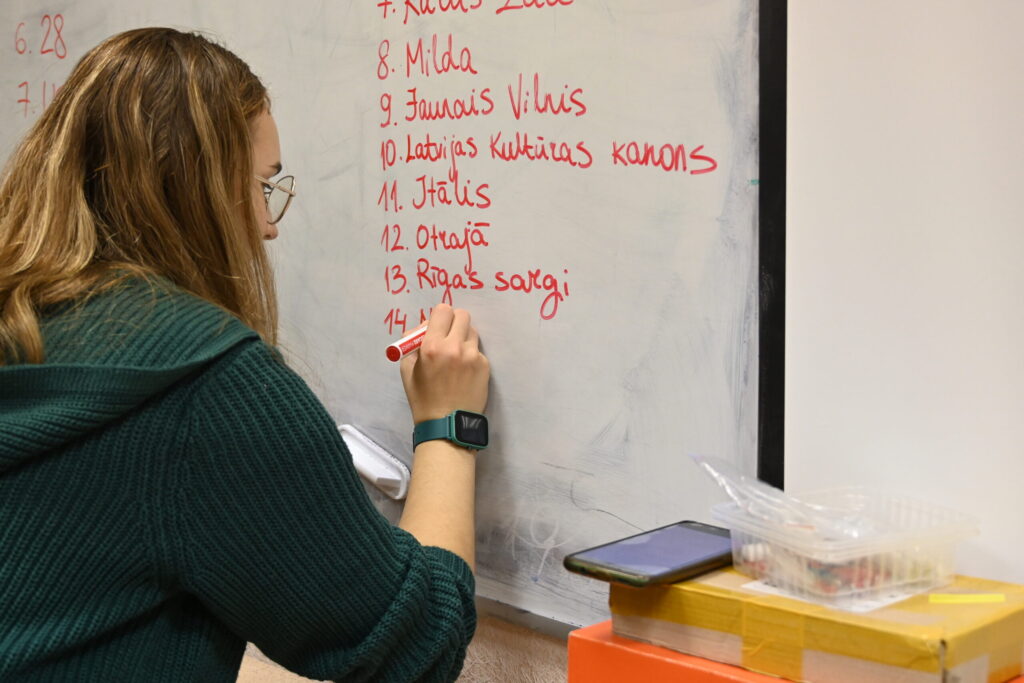 6. 28
7.
7.
8. Milda
9. Jaunais Vilnis
10. Latvijas Kultūras kanons
11. Itālis
12. Otrajā
13. Rīgas sargi
14.